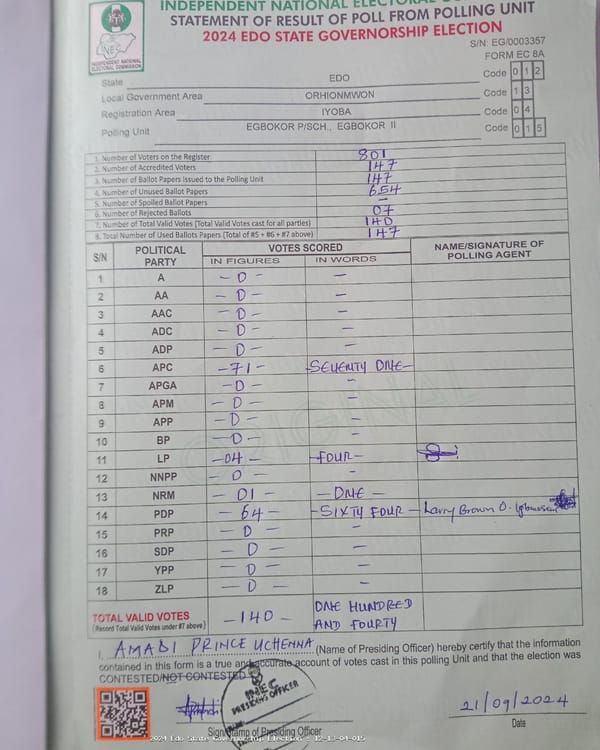 INDEPENDENT NATIONAL ELECTORAL
STATEMENT OF RESULT OF POLL FROM POLLING UNIT
2024 EDO STATE GOVERNORSHIP ELECTION
INEC
INDEPENDENT NATIONAL
ELECTORAL COMMISSION
S/N: EG/0003357
FORM EC 8A
State EDO Code 0 1 2
Local Government Area ORHIONMWON Code 1 3
Registration Area IYOBA Code 0 4
Polling Unit EGBOKOR P/SCH., EGBOKOR II Code 0 1 5
1. Number of Voters on the Register 801
2. Number of Accredited Voters 147
3. Number of Ballot Papers Issued to the Polling Unit 147
4. Number of Unused Ballot Papers 654
5. Number of Spoiled Ballot Papers –
6. Number of Rejected Ballots 07
7. Number of Total Valid Votes (Total Valid Votes cast for all parties) 140
8. Total Number of Used Ballots Papers (Total of #5 + #6 + #7 above) 147
S/N POLITICAL PARTY VOTES SCORED NAME/SIGNATURE OF POLLING AGENT
IN FIGURES IN WORDS
1 A – 0 – –
2 AA – 0 – –
3 AAC – 0 – –
4 ADC – 0 – –
5 ADP – 0 – –
6 APC – 71 – SEVENTY ONE –
7 APGA – 0 – –
8 APM – 0 – –
9 APP – 0 – –
10 BP – 0 – –
11 LP – 04 – – FOUR –
12 NNPP – 0 – –
13 NRM – 01 – – ONE –
14 PDP – 64 – – SIXTY FOUR – Larry Brown O.
15 PRP – 0 – –
16 SDP – 0 – –
17 YPP – 0 – –
18 ZLP – 0 – –
TOTAL VALID VOTES – 140 – ONE HUNDRED
(Record Total Valid Votes under #7 above) AND FOURTY
I, AMADI PRINCE UCHENNA (Name of Presiding Officer) hereby certify that the information
contained in this form is a true and accurate account of votes cast in this polling Unit and that the election was
CONTESTED/NOT CONTESTED
INEC
PRESIDING OFFICER
21/09/2024
Sign/Stamp of Presiding Officer Date
2024 Edo State Governorship Election - 12-13-04-015
ORIGINAL